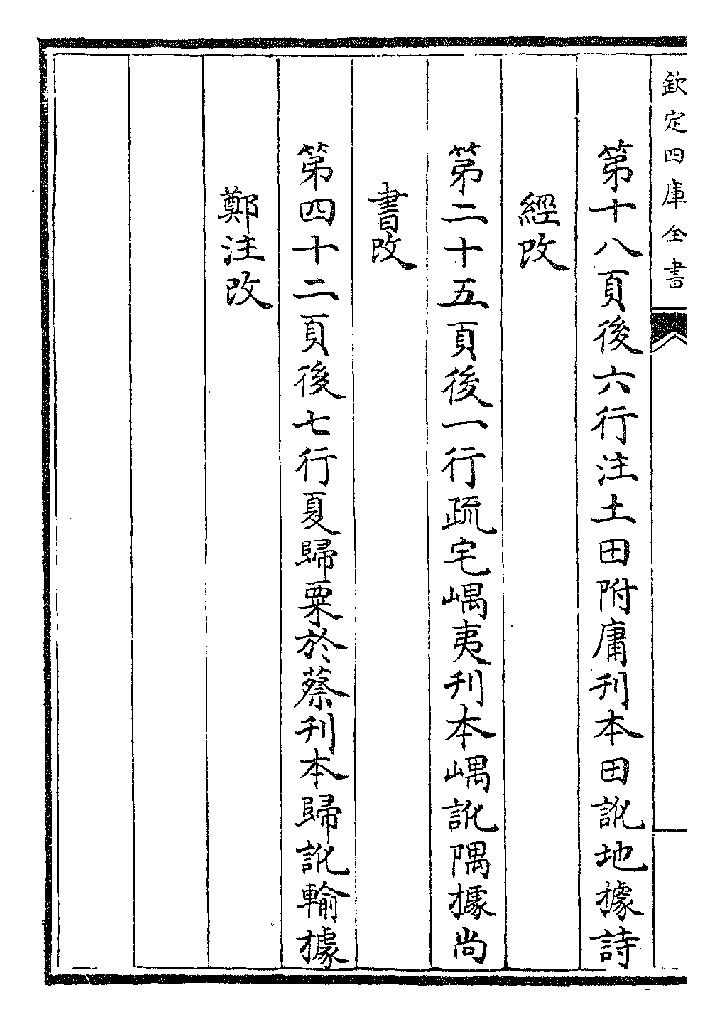 欽定四庫全書
第十八頁後六行注土田附庸刋本田訛地據詩
經改
第二十五頁後一行疏宅嵎夷刋本嵎訛隅據尚
書改
第四十二頁後七行夏歸粟於蔡刋本歸訛輸據
鄭注改